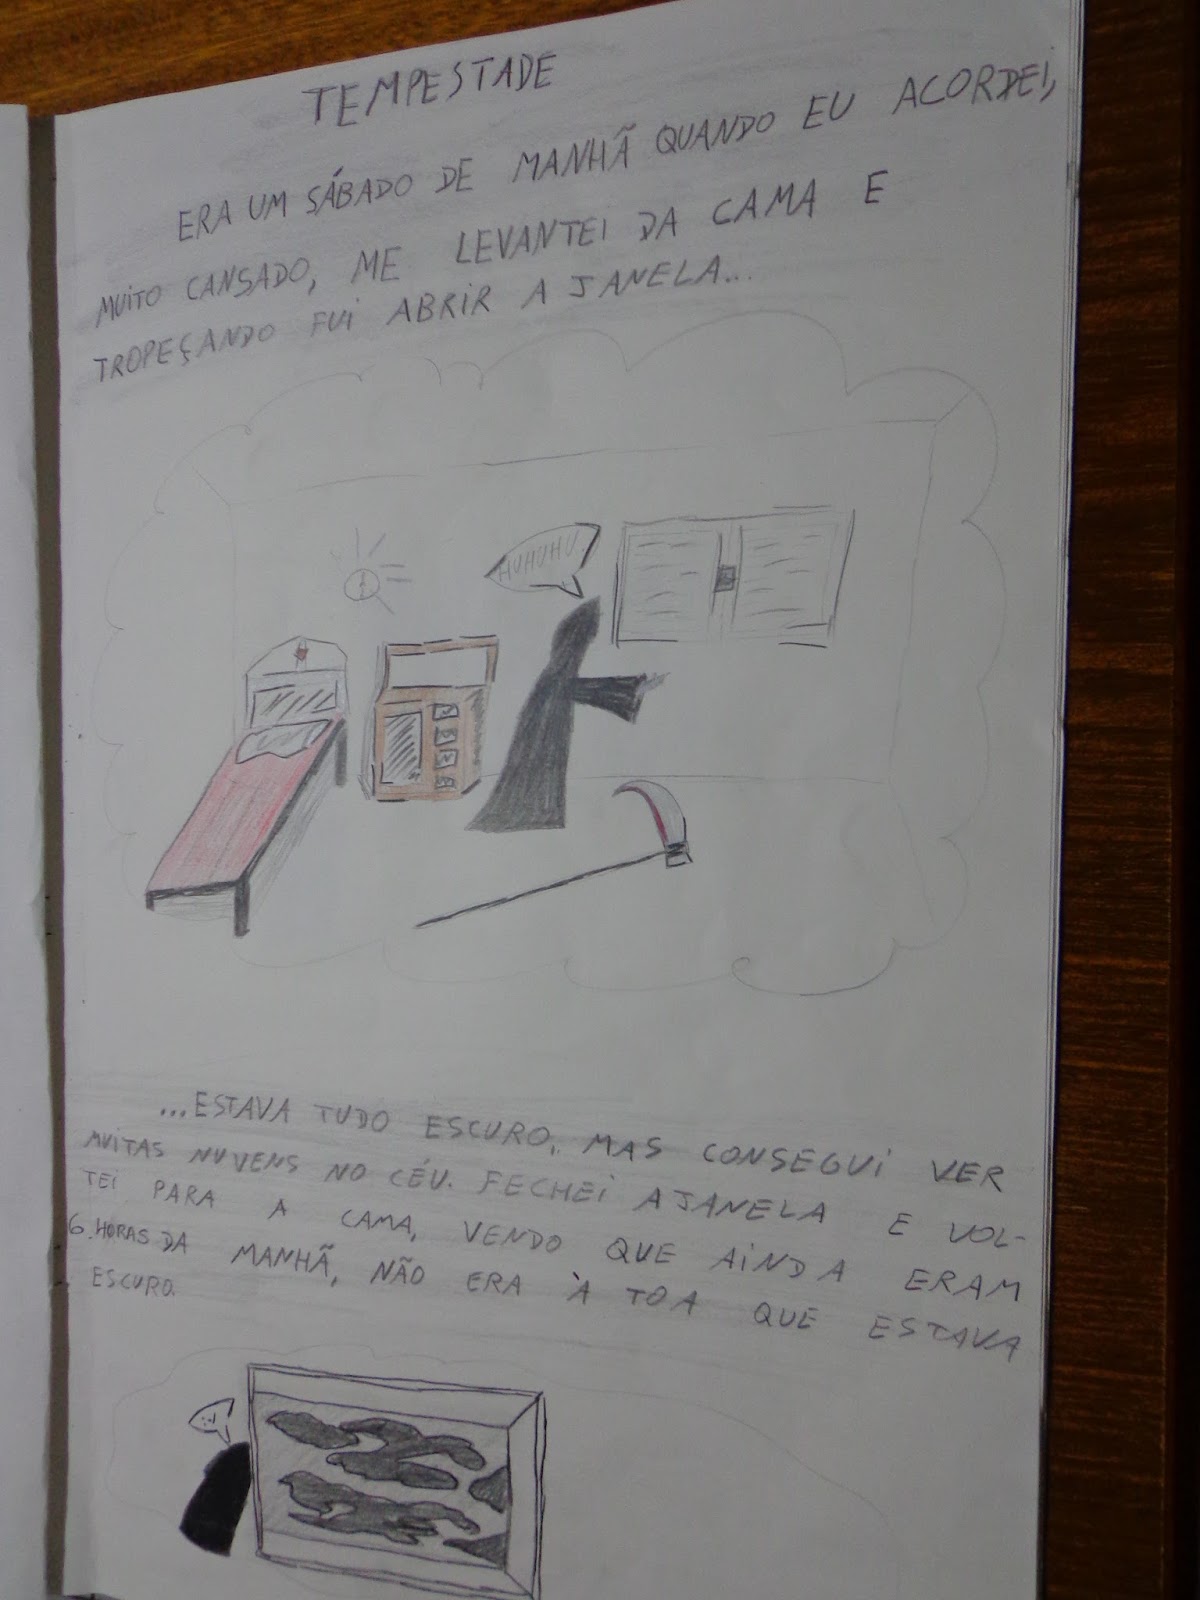 TEMPESTADE
ERA UM SÁBADO DE MANHÃ QUANDO EU ACORDEI,
MUITO CANSADO, ME LEVANTEI DA CAMA E
TROPEÇANDO FUI ABRIR A JANELA...
HUHUHU
...ESTAVA TUDO ESCURO, MAS CONSEGUI VER
MUITAS NUVENS NO CÉU. FECHEI A JANELA E VOL-
TEI PARA A CAMA, VENDO QUE AINDA ERAM
6 HORAS DA MANHÃ, NÃO ERA À TOA QUE ESTAVA
ESCURO.